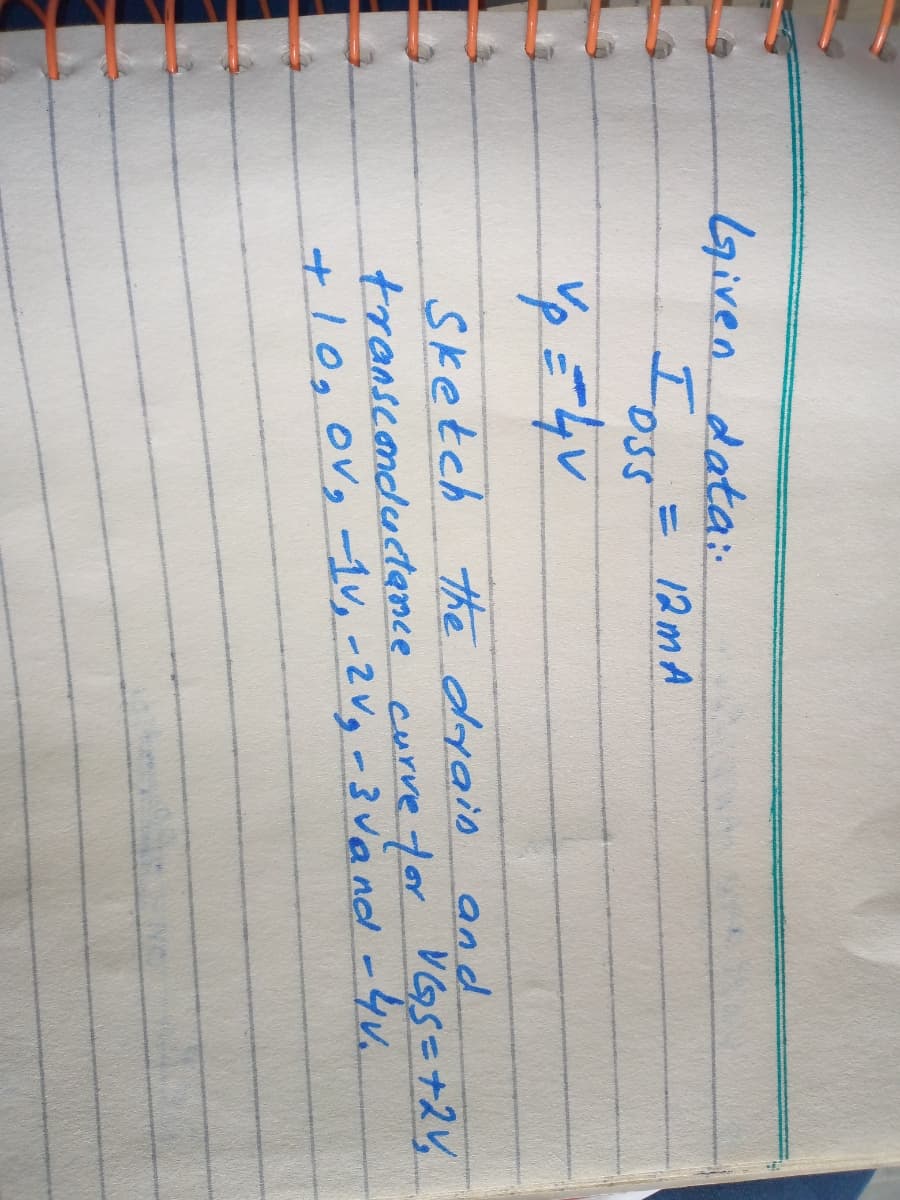 Given data:
IDSS = 12mA
Vp = -4V
Sketch the drain and
transconductance curve for VGS = +2V,
+10, 0V, -1V, -2V, -3V and -4V.